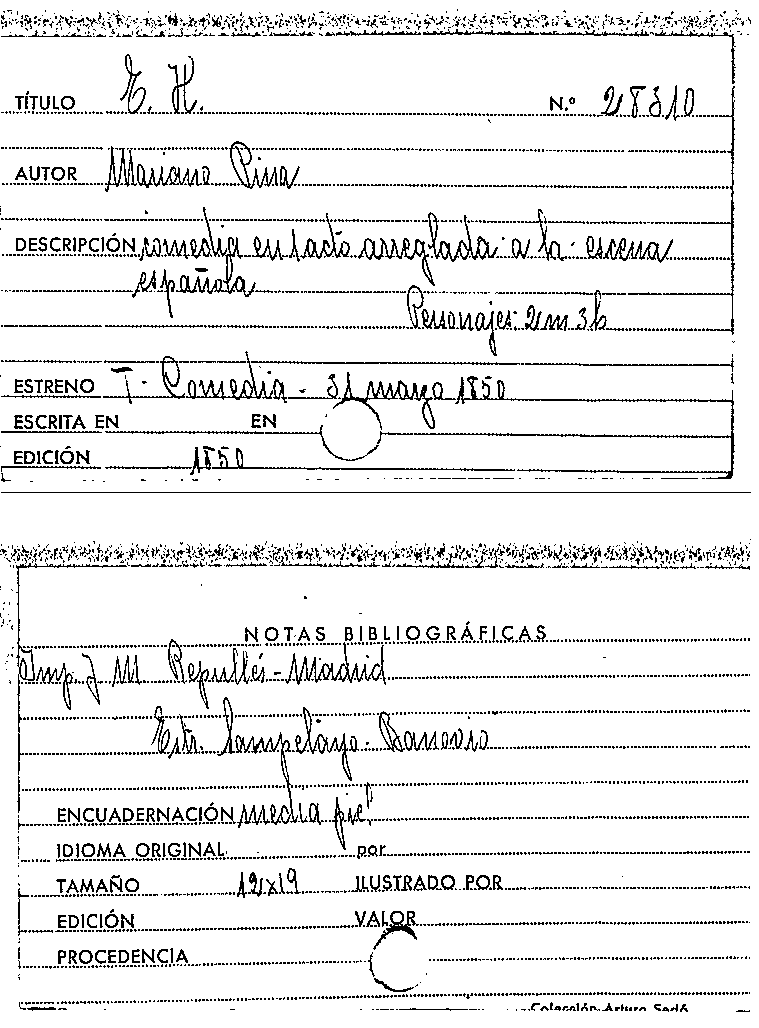 TÍTULO E. H. N.º 28310
AUTOR Mariano Pina
DESCRIPCIÓN comedia en 1 acto arreglada a la escena
española
Personajes: 2 m 3 h
ESTRENO T. Comedia - 31 marzo 1850
ESCRITA EN EN
EDICIÓN 1850
NOTAS BIBLIOGRÁFICAS
Imp. J M Repullés - Madrid
Estr. Sampelayo - Banovio
ENCUADERNACIÓN media piel
IDIOMA ORIGINAL por
TAMAÑO 12x19 ILUSTRADO POR
EDICIÓN VALOR
PROCEDENCIA
Colección Arturo Sedó